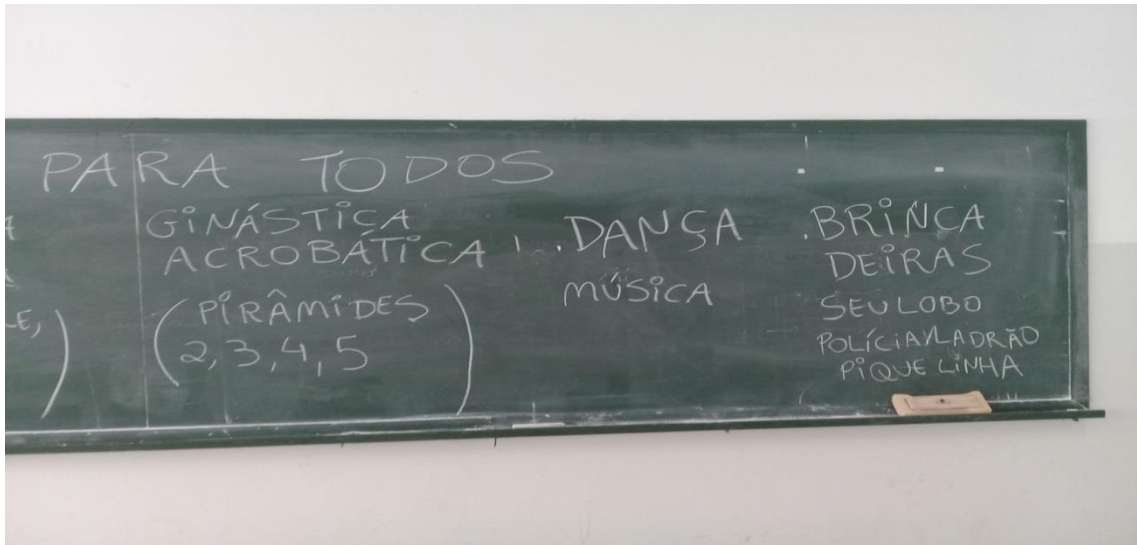 PARA TODOS
GINÁSTICA
ACROBÁTICA
(PIRÂMIDES
2, 3, 4, 5)
.DANÇA
MÚSICA
.BRINCA
DEIRAS
SEU LOBO
POLÍCIA/LADRÃO
PIQUE LINHA